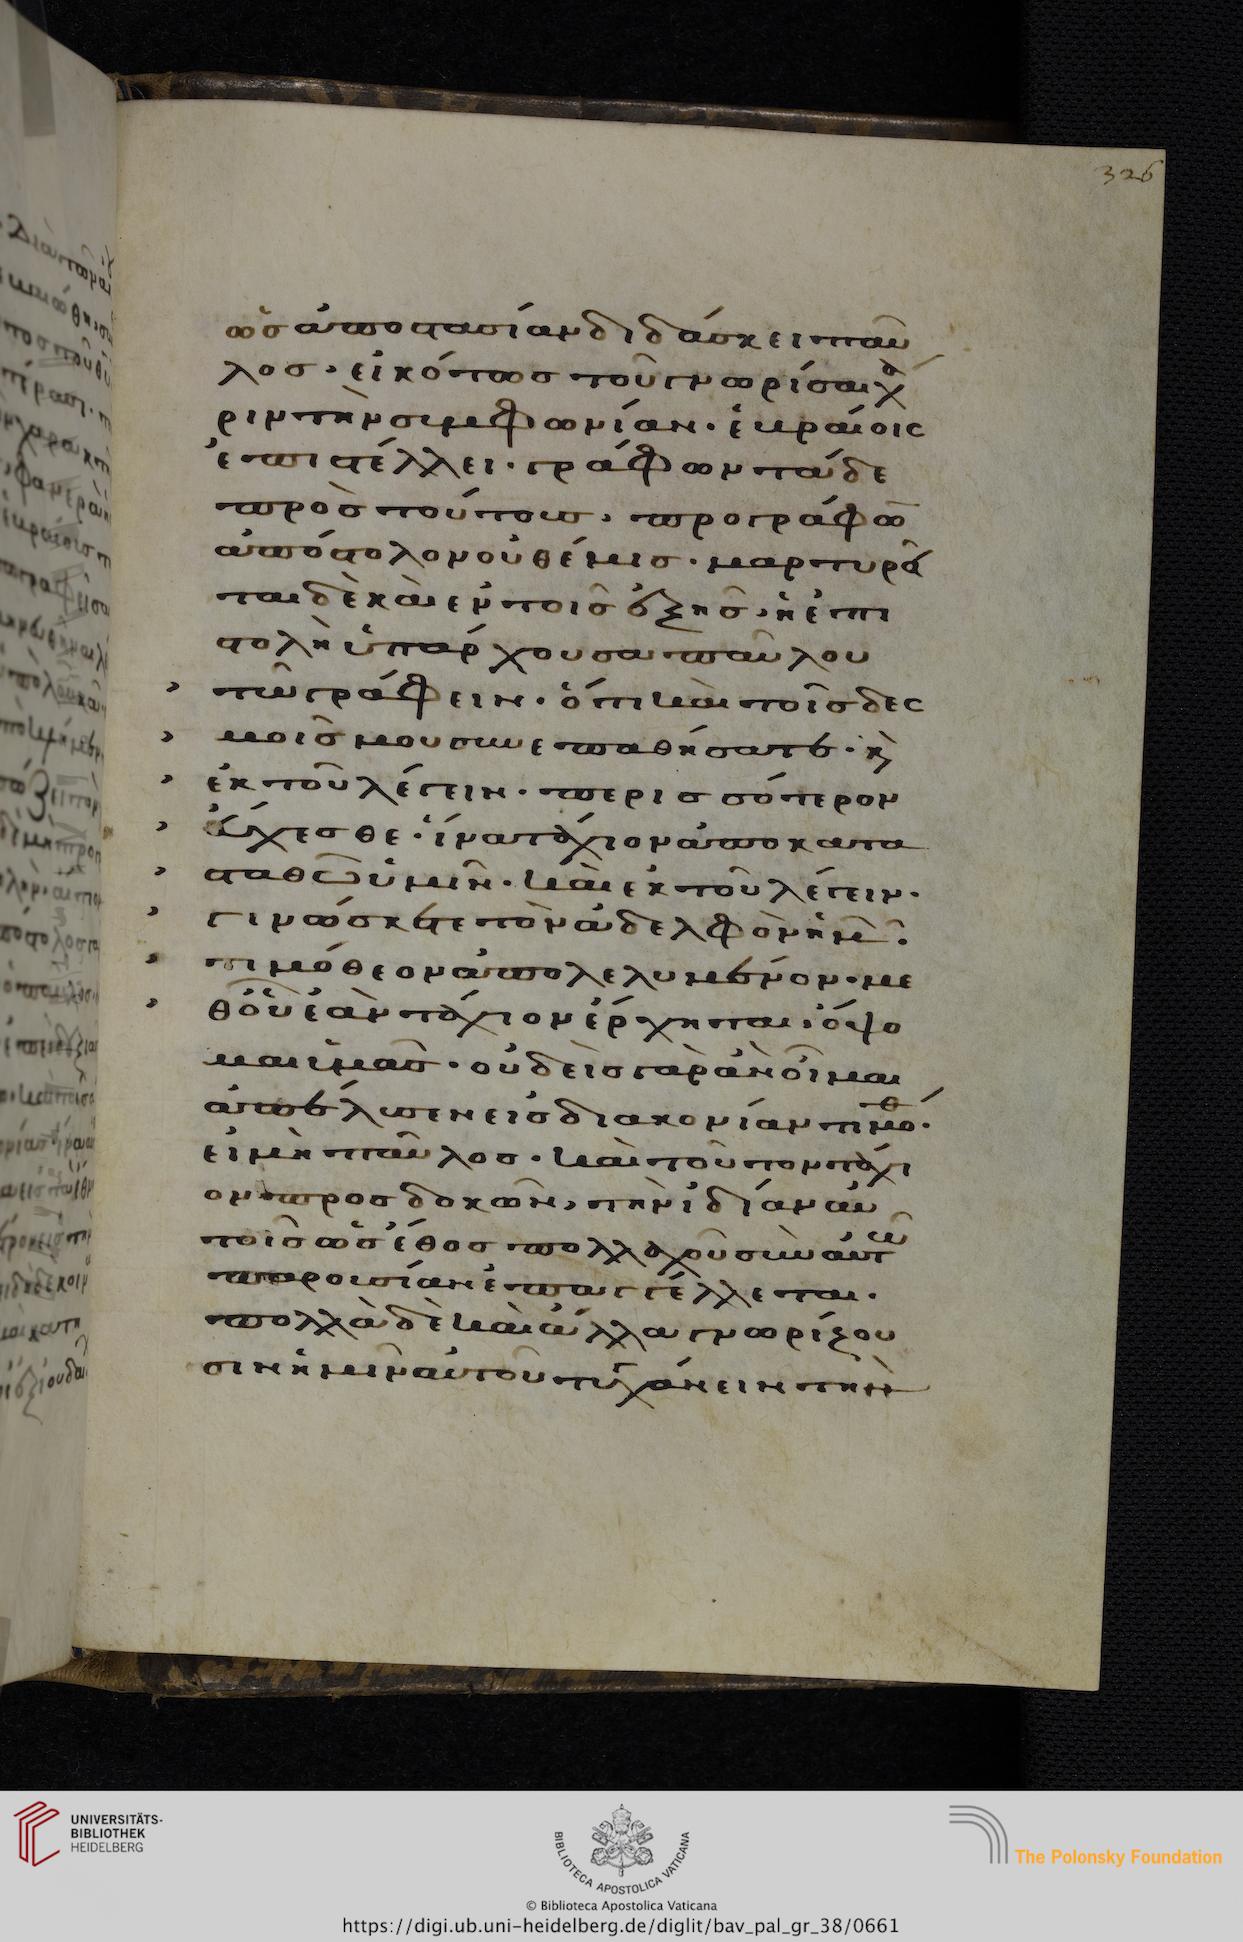 326
ὡς ἀποστασίαν διδάσκει παῦ
λος. εἰκότως τοῦ γνωρίσαι χά
ριν τὴν συμφωνίαν. ἑβραίοις
ἐπιστέλλει. γράφων τάδε
πρὸς τούτοις, προγράφων
ἀπόστολον οὐ θέμις. μαρτυρεῖ
ται δὲ καὶ ἐν τοῖς ἑξῆς, ἡ ἐπι
στολὴ ὑπάρχουσα παύλου
τῶ γράφειν. ὅτι καὶ τοῖς δεσ
μοῖς μου συνεπαθήσατε. καὶ
ἐκ τοῦ λέγειν. περισσότερον
εὔχεσθε. ἵνα τάχιον ἀποκατα
σταθῶ ὑμῖν. καὶ ἐκ τοῦ λέγειν.
γινώσκετε τὸν ἀδελφὸν ἡμῶν.
τιμόθεον ἀπολελυμένον. με
θ' οὗ ἐὰν τάχιον ἔρχηται, ὄψο
μαι ὑμᾶς. οὐδεὶς γὰρ ἂν οἶμαι
ἀπέλυσεν εἰς διακονίαν τιμόθ.
εἰ μὴ παῦλος. καὶ τοῦτον τάχι
ον προσδοκῶν, τὴν ἰδίαν αὐ
τοῖς ὡς ἔθος πολλαχοῦ σὺν αὐτῶ
παρουσίαν ἐπαγγέλλεται.
πολλὰ δὲ καὶ ἄλλα γνωρίζου
σιν ἡμῖν αὐτοῦ τυγχάνειν τὴν
UNIVERSITÄTS-
BIBLIOTHEK
HEIDELBERG
BIBLIOTECA APOSTOLICA VATICANA
The Polonsky Foundation
© Biblioteca Apostolica Vaticana
https://digi.ub.uni-heidelberg.de/diglit/bav_pal_gr_38/0661